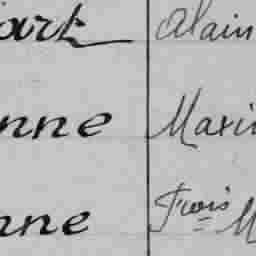 art Alain
nne Maxi
nne Frois M